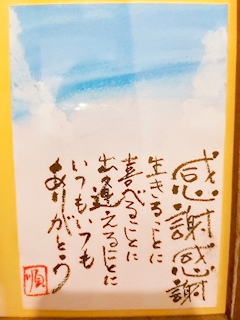 感謝感謝
生きることに
喜べることに
出逢えることに
いつもいつも
ありがとう
順